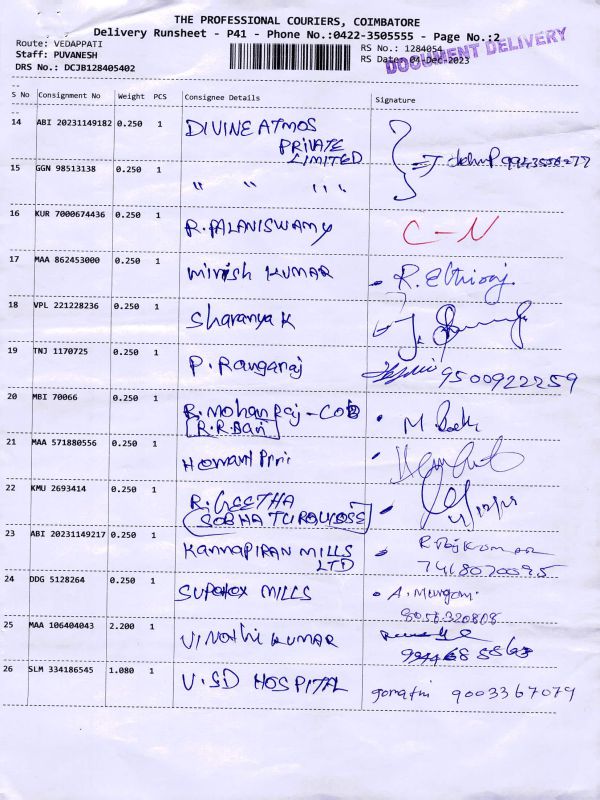 THE PROFESSIONAL COURIERS, COIMBATORE
Delivery Runsheet - P41 - Phone No.:0422-3505555 - Page No.:2
Route: VEDAPPATI
RS No.: 1284054
Staff: PUVANESH
RS Date: 04-Dec-2023
DRS No.: DCJB128405402
DOCUMENT DELIVERY
S No Consignment No Weight PCS Consignee Details Signature
14 ABI 20231149182 0.250 1 DIVINE ATMOS
PRIVATE
LIMITED
15 GGN 98513138 0.250 1 " " " "
16 KUR 7000674436 0.250 1 R. PALANISWAMY C - N
17 MAA 862453000 0.250 1 KUMAR
18 VPL 221228236 0.250 1 Sharanya K
19 TNJ 1170725 0.250 1 P. Rangaraj 9500922259
20 MBI 70066 0.250 1 R. Mohan Raj - M.
21 MAA 571880556 0.250 1
22 KMU 2693414 0.250 1 R. GEETHA
SOBHA TURQUOISE
23 ABI 20231149217 0.250 1 KANNAPIRAN MILLS
LTD
24 DDG 5128264 0.250 1 MILLS A. Murgan
8056320808
25 MAA 106404043 2.200 1 KUMAR
26 SLM 334186545 1.080 1 V. GD HOSPITAL 9003367079